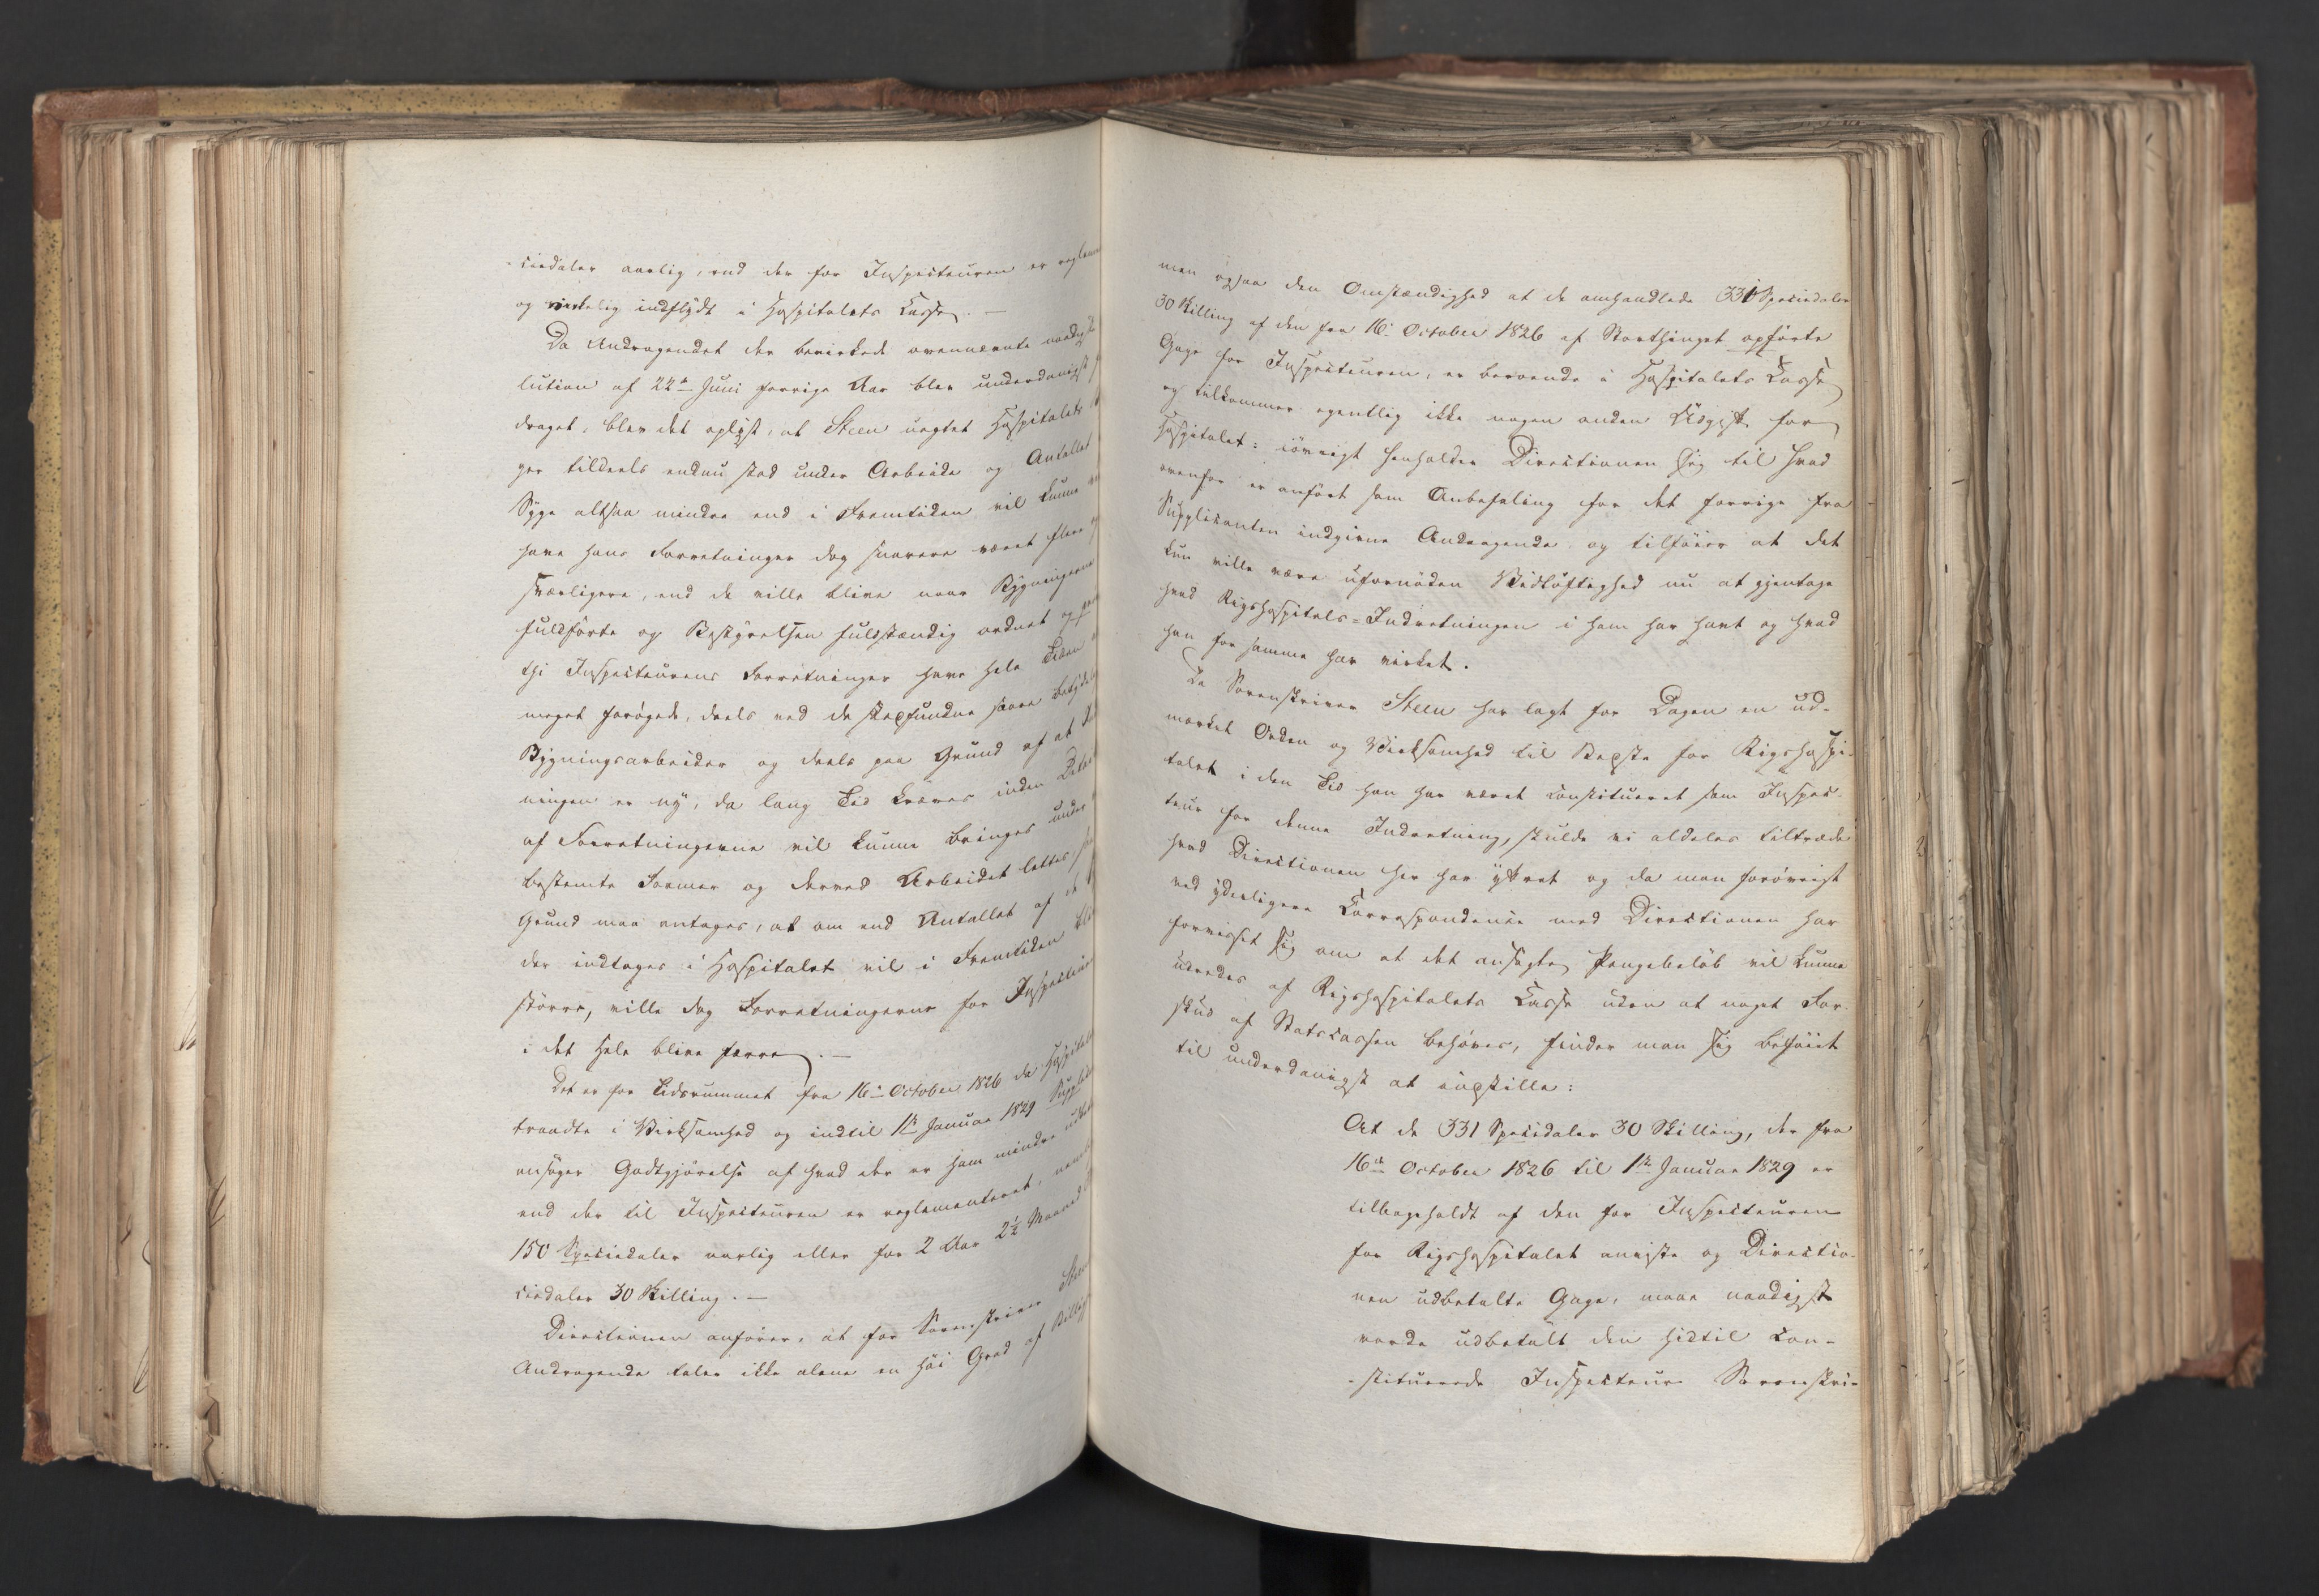 -ciedaler aarlig, end der for Inspecteuren er reglem
og virkelig indflydt i Hospitalets Casse. —
Da Andragendet der bevirkede ovennævnte naadigst
lution af 22de Juni forrige Aar blev underdanigst
draget, blev det oplyst, at Steen uagtet Hospitalets
ger tildeels endnu stod under Arbeide og Antallet
Syge altsaa mindre end i Fremtiden vil kunne
have hans Forretninger dog snarere været flere
særligere, end de ville blive naar Bygningerne
fuldførte og Bestyrelsen fuldstændig ordnet og
thi Inspecteurens Forretninger have hele Tiden
meget forøgede, deels ved de stedfundne store betyde
Bygningsarbeider og deels paa Grund af at
ningen er ny, da lang Tid kræves inden Detail
af Forretningerne vil kunne bringes under
bestemte Former og derved Arbeidet lettes,
Grund maa antages, at om end Antallet af de
der indtages i Hospitalet vil i Fremtiden blive
større, ville dog Forretningerne for Inspecteur
i det Hele blive færre. —
Det er for Tidsrummet fra 16de October 1826 da Hospital
traadte i Virksomhed og indtil 1ste Januar 1829 Supplic
ansøger Godtgjørelse af hvad der er ham mindre udbet
end der til Inspecteuren er reglementeret, neml
150 Speciedaler aarlig eller for 2 Aar 2½ Maaned
ciedaler 30 Skilling. —
Directionen anfører, at for Sorenskriver Steens
Andragende taler ikke alene en høi Grad af Billigh
men ogsaa den Omstændighed at de omhandlede 331 Speciedaler
30 Skilling af den fra 16de October 1826 af Storthinget opførte
Gage for Inspecteuren, er beroende i Hospitalets Casse
og tilkommer egentlig ikke nogen anden Udgift for
Hospitalet: iøvrigt henholder Directionen sig til hvad
ovenfor er anført som Anbefaling for det forrige fra
Supplicanten indgivne Andragende og tilføier at det
kun ville være ufornøden Vidtløftighed nu at gjentage
hvad Rigshospitals-Indretningen i ham har havt og hvad
han for samme har virket.
Da Sorenskriver Steen har lagt for Dagen en ud-
mærket Orden og Virksomhed til Bedste for Rigshospi-
talet i den Tid han har været constitueret som Inspec-
teur for denne Indretning, skulde vi aldeles tiltræde
hvad Directionen her har yttret og da man forøvrigt
ved yderligere Correspondence med Directionen har
forvisset sig om at det ansøgte Pengebeløb vil kunne
udredes af Rigshospitalets Casse uden at noget For-
skud af Statscassen behøves, finder man sig beføiet
til underdanigst at indstille:
At de 331 Speciedaler 30 Skilling, der fra
16de October 1826 til 1ste Januar 1829 er
tilbageholdt af den for Inspecteuren
for Rigshospitalet anviste og Directio-
nen udbetalte Gage, maae naadigst
vorde udbetalt den hidtil con-
-stituerede Inspecteur Sorenskri-